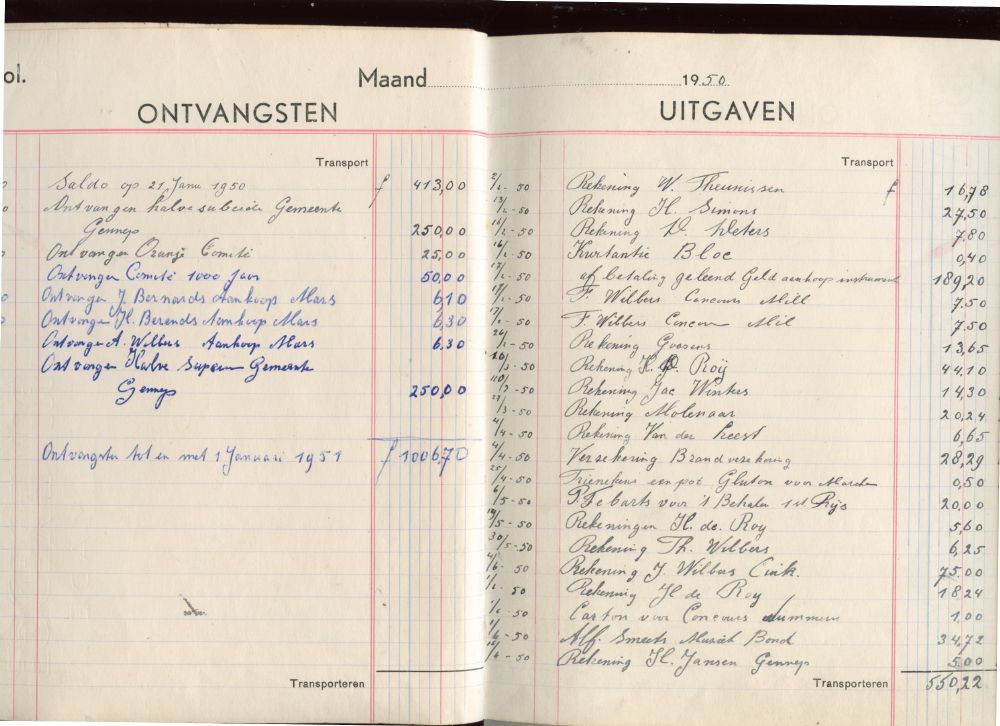 ol.
Maand
ONTVANGSTEN
Transport
Saldo op 21 Janu 1950 f 413,00
Ontvangen halve subsidie Gemeente
Gennep 250,00
Ontvangen Oranje Comité 25,00
Ontvangen Comité 1000 Jaar 50,00
Ontvangen J. Bernards Aankoop Mars 6,10
Ontvangen H. Berends Aankoop Mars 6,30
Ontvangen A. Wilbers Aankoop Mars 6,30
Ontvangen Halve Gemeente
Gennep 250,00
Ontvangsten tot en met 1 Januari 1951 f 1006,70
Transporteren
1950
UITGAVEN
Transport
Rekening W. Theunissen f 16,78
Rekening H. Simons 27,50
Rekening Peters 7,80
Kwitantie Bloc 0,40
af betaling geleend Geld aankoop instrument 189,20
F. Wilbers Concours Mill 7.50
F. Wilbers Concours Mil 7.50
Rekening Goosens 13,65
3-50 Rekening H. D. Roÿ 44.10
3-50 Rekening Jac Winters 14,30
3-50 Rekening Molenaar 20,24
4/4-50 Rekening Van der Leest 6,65
4/4-50 Versekering Brandversekering 28,29
25/4-50 Trienekens een pot Gluton voor Marsen 0,50
6/5-50 P. Febarts voor 't Behalen 1st Prijs 20,00
5-50 Rekeningen H. de. Roy 5,60
30/5-50 Rekening Th. Wilbers 6,25
4/6-50 Rekening J Wilbers Cuik. 75.00
50 Rekening H de Roy 18 24
-50 Carton voor Concours nummers 1,00
6-50 Alf. Smeets Muziek Bond 34,72
-50 Rekening H. Jansen Gennep 5,00
Transporteren 550,22